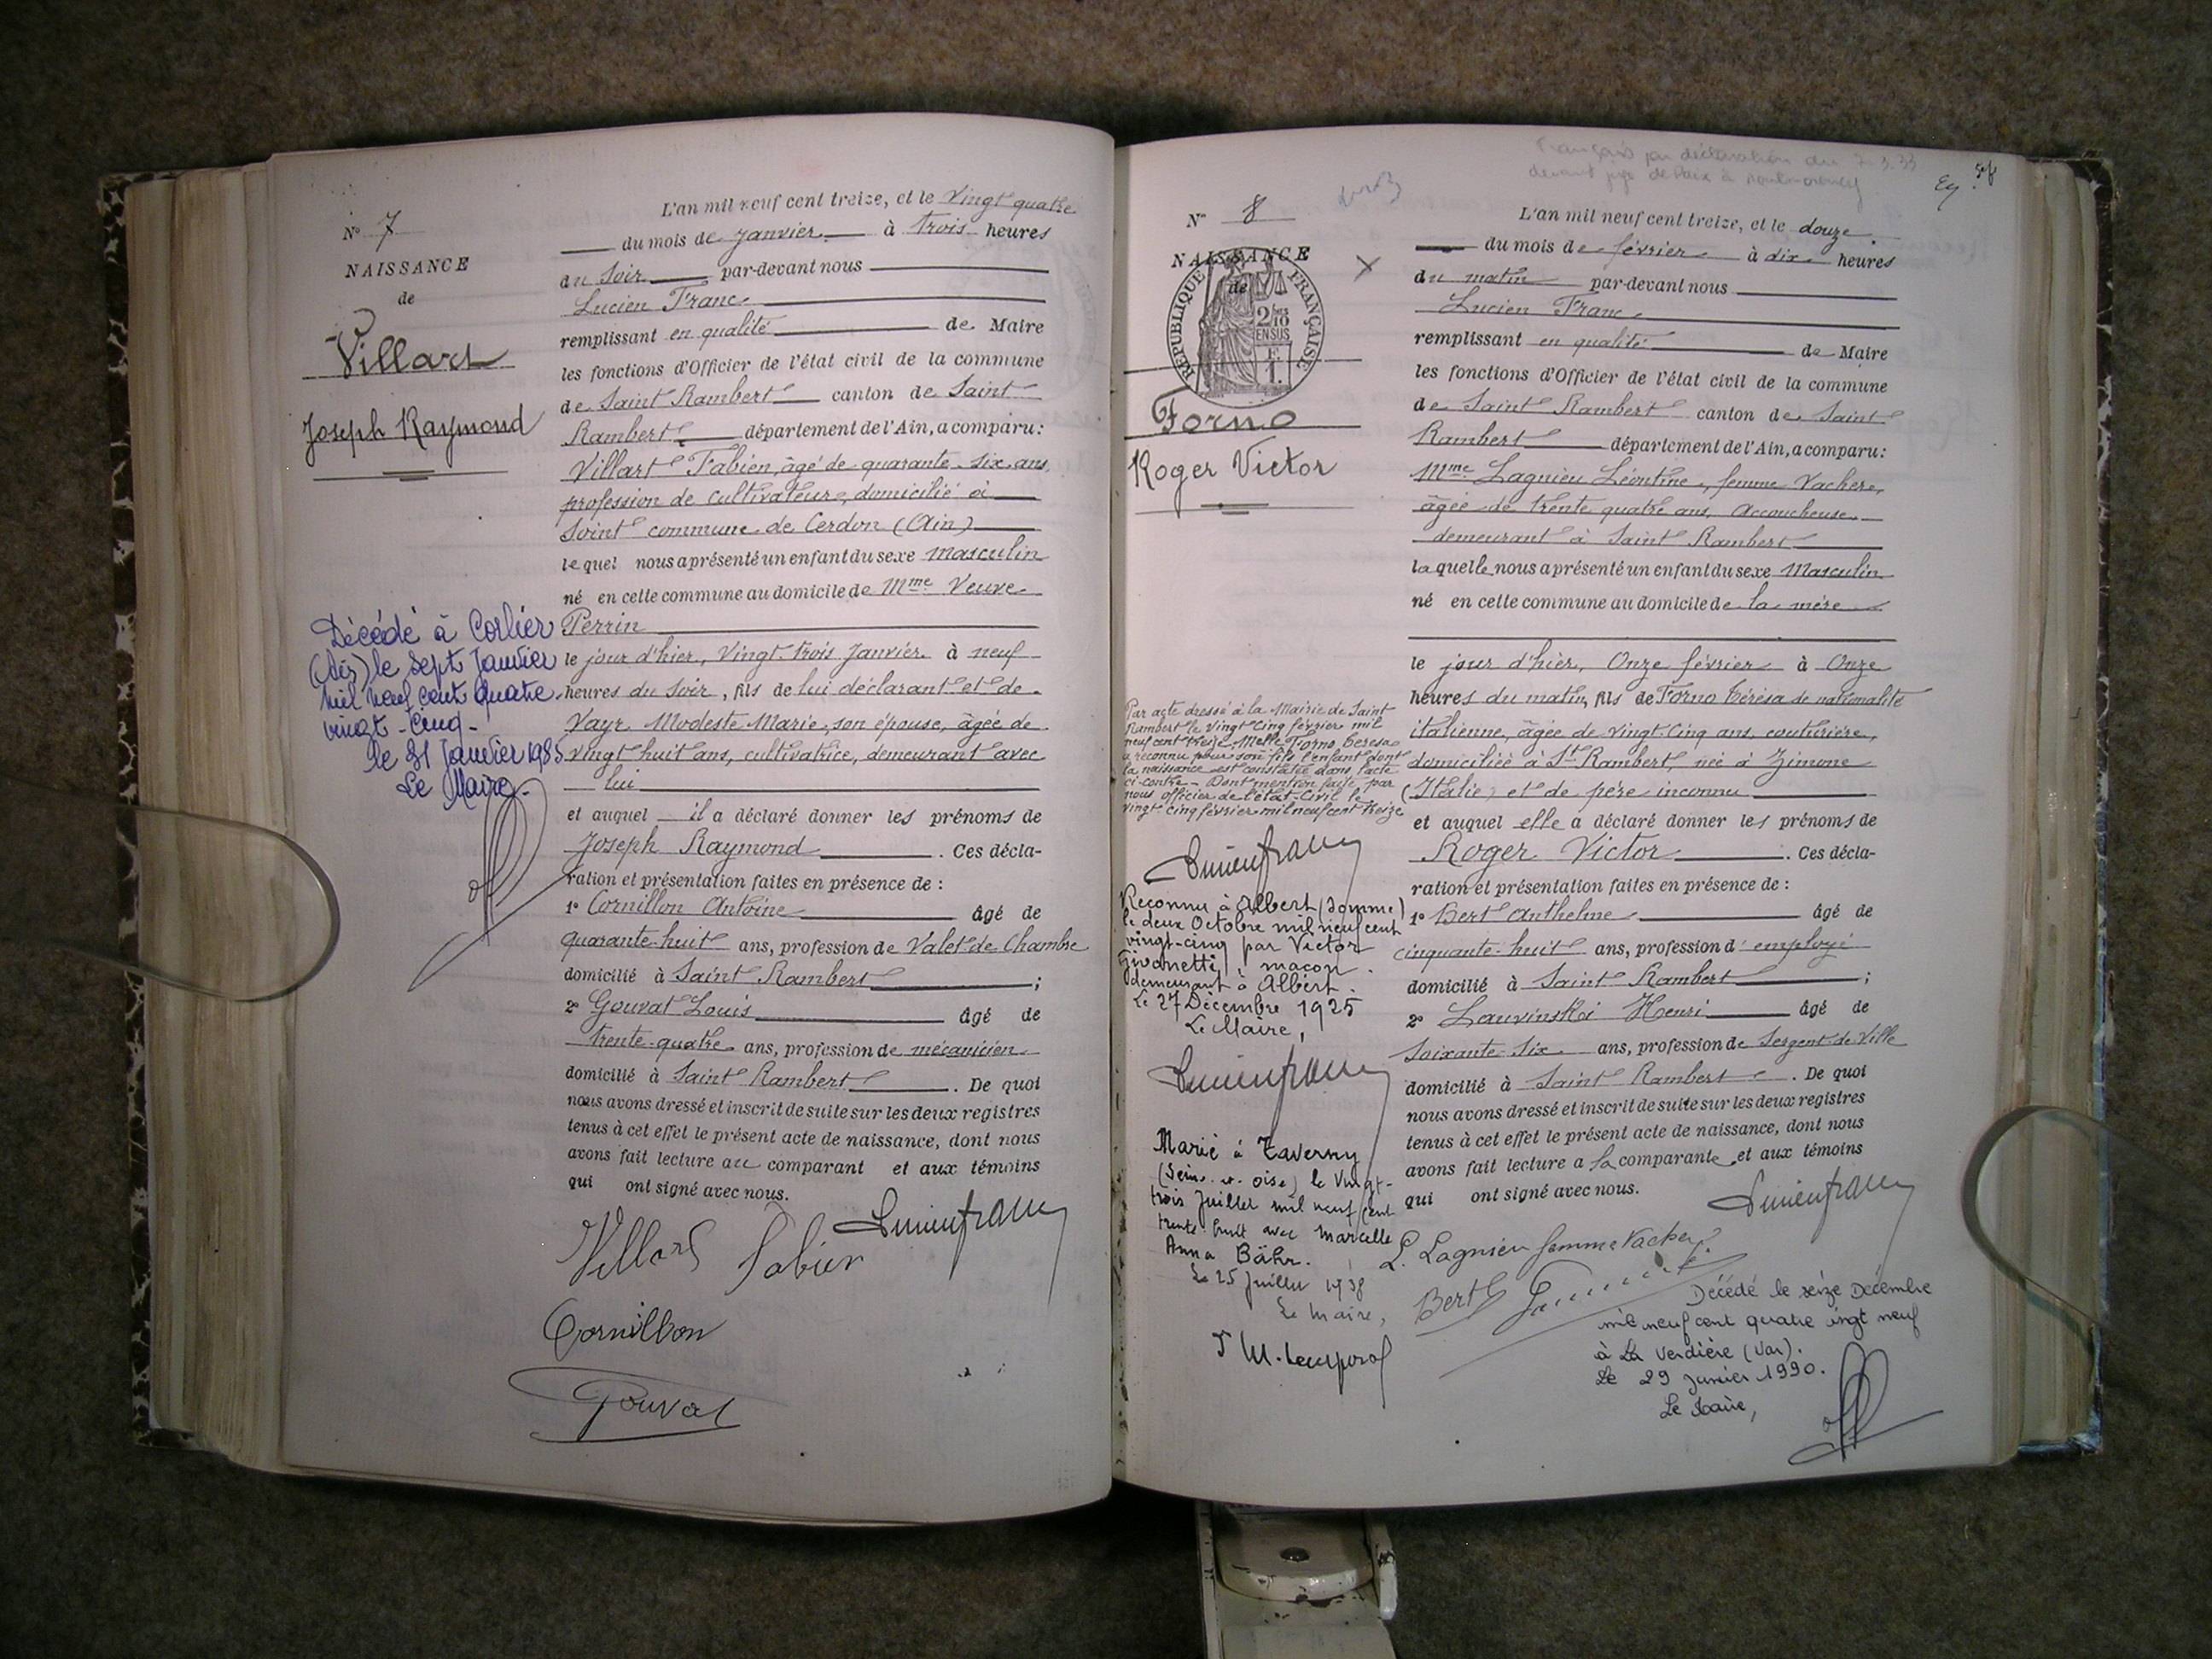 N° 7
NAISSANCE
de
Villart
Joseph Raymond
Décédé à Corlier
(Ain) le sept Janvier
mil neuf cent quatre-
vingt-cinq-
le 31 Janvier 1985
Le Maire-
L'an mil neuf cent treize, et le Vingt quatre
du mois de janvier à trois heures
du soir par-devant nous
Lucien Franc
remplissant en qualité de Maire
les fonctions d'Officier de l'état civil de la commune
de Saint Rambert canton de Saint
Rambert département de l'Ain, a comparu:
Villart Fabien, âgé de quarante-six ans,
profession de cultivateur, domicilié à
commune de Cerdon (Ain)
lequel nous a présenté un enfant du sexe Masculin
né en cette commune au domicile de Mme Veuve
Perrin
le jour d'hier, Vingt-trois Janvier à neuf
heures du soir, fils de lui déclarant et de
Vayr Modeste Marie, son épouse, âgée de
vingt huit ans, cultivatrice, demeurant avec
lui
et auquel il a déclaré donner les prénoms de
Joseph Raymond . Ces décla-
ration et présentation faites en présence de :
1° Cornillon Antoine âgé de
quarante-huit ans, profession de Valet de Chambre
domicilié à Saint Rambert ;
2° Gouvat Louis âgé de
trente-quatre ans, profession de mécanicien
domicilié à Saint Rambert . De quoi
nous avons dressé et inscrit de suite sur les deux registres
tenus à cet effet le présent acte de naissance, dont nous
avons fait lecture au comparant et aux témoins
qui ont signé avec nous.
Villard Fabien Lucien franc
Cornillon
Gouvat
Français par déclaration du 7.3.33
devant juge de Paix à Montmorency
N° 8
NAISSANCE
de
RÉPUBLIQUE FRANÇAISE
2/10
EN SUS
F.
1.
Forno
Roger Victor
Par acte dressé à la Mairie de Saint
Rambert le vingt cinq février mil
neuf cent treize Melle Forno Cérésa
a reconnu pour son fils l'enfant dont
la naissance est constatée dans l'acte
ci-contre - Dont mention faite par
nous officier de l'état-Civil le
vingt-cinq février mil neuf cent treize
Lucien franc
Reconnu à Albert (Somme)
le deux Octobre mil neuf cent
vingt-cinq par Victor
maçon
demeurant à Albert.
Le 27 Décembre 1925
Le Maire,
Lucien franc
Marié à Taverny
(Seine-et-Oise) le Vingt-
trois Juillet mil neuf cent
trente huit avec Marcelle
Anna Bähr.
Le 25 Juillet 1938
Le Maire,
L'an mil neuf cent treize, et le douze
du mois de février à dix heures
du matin par-devant nous
Lucien Franc
remplissant en qualité de Maire
les fonctions d'Officier de l'état civil de la commune
de Saint Rambert canton de Saint
Rambert département de l'Ain, a comparu:
Mme Lagnieu Léontine, femme Vacher,
âgée de trente quatre ans, Accoucheuse
demeurant à Saint Rambert
laquelle nous a présenté un enfant du sexe Masculin
né en cette commune au domicile de la mère
le jour d'hier, Onze février à Onze
heures du matin, fils de Forno Cérésa de nationalité
italienne, âgée de vingt-Cinq ans, couturière,
domiciliée à St Rambert, née à Zimone
(Italie) et de père inconnu
et auquel elle a déclaré donner les prénoms de
Roger Victor . Ces décla-
ration et présentation faites en présence de :
1° Bert Anthelme âgé de
cinquante-huit ans, profession d'employé
domicilié à Saint Rambert ;
2° Lauvinski Henri âgé de
Soixante-Six ans, profession de Sergent de Ville
domicilié à Saint Rambert . De quoi
nous avons dressé et inscrit de suite sur les deux registres
tenus à cet effet le présent acte de naissance, dont nous
avons fait lecture a la comparante et aux témoins
qui ont signé avec nous.
Lucien franc
L. Lagnieu femme Vacher
Bert
Décédé le seize Décembre
mil neuf cent quatre vingt neuf
à La Verdière (Var).
Le 29 Janvier 1990.
Le Maire,